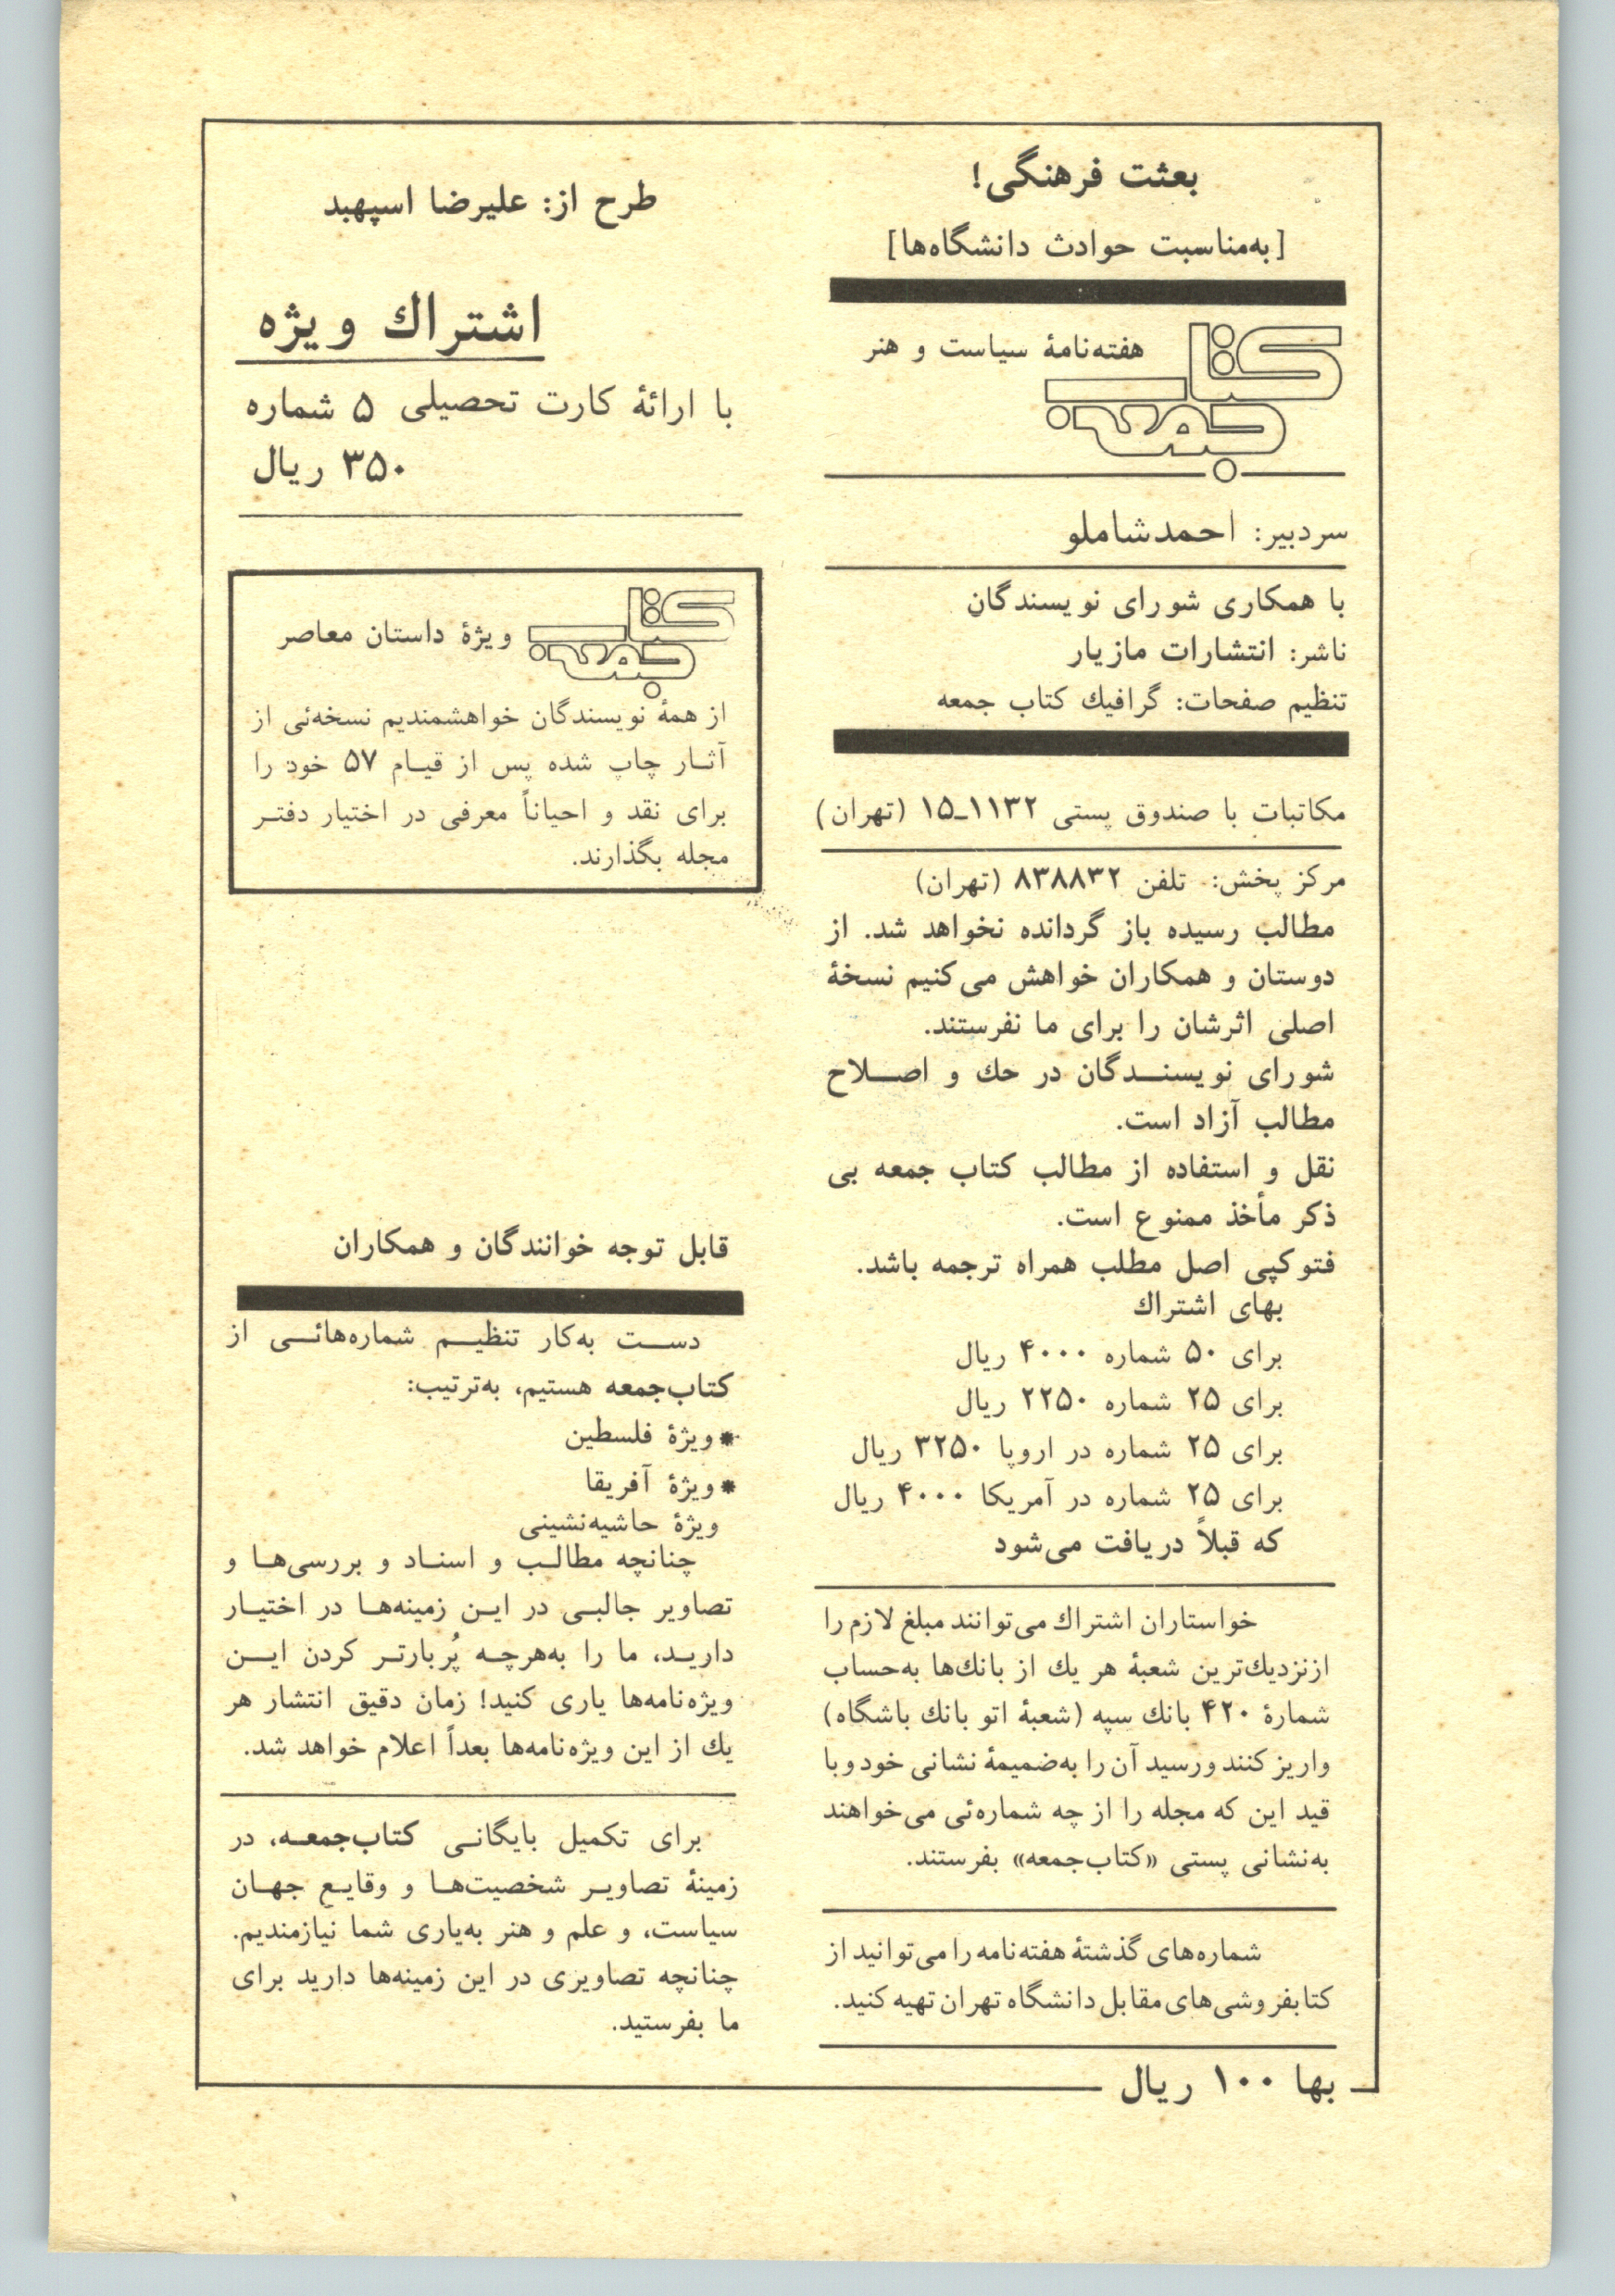 بعثت فرهنگی!
[به‌مناسبت حوادث دانشگاه‌ها]
کتاب جمعه
هفته‌نامهٔ سیاست و هنر
سردبیر: احمدشاملو
با همکاری شورای نویسندگان
ناشر: انتشارات مازیار
تنظیم صفحات: گرافیك کتاب جمعه
مکاتبات با صندوق پستی ۱۱۳۲ـ۱۵ (تهران)
مرکز پخش: تلفن ۸۳۸۸۳۲ (تهران)
مطالب رسیده باز گردانده نخواهد شد. از
دوستان و همکاران خواهش می‌کنیم نسخهٔ
اصلی اثرشان را برای ما نفرستند.
شورای نویسنــدگان در حك و اصــلاح
مطالب آزاد است.
نقل و استفاده از مطالب کتاب جمعه بی
ذکر مأخذ ممنوع است.
فتوکپی اصل مطلب همراه ترجمه باشد.
بهای اشتراك
برای ۵۰ شماره ۴۰۰۰ ریال
برای ۲۵ شماره ۲۲۵۰ ریال
برای ۲۵ شماره در اروپا ۳۲۵۰ ریال
برای ۲۵ شماره در آمریکا ۴۰۰۰ ریال
که قبلاً دریافت می‌شود
خواستاران اشتراك می‌توانند مبلغ لازم را
ازنزدیك‌ترین شعبهٔ هر یك از بانك‌ها به‌حساب
شمارهٔ ۴۲۰ بانك سپه (شعبهٔ اتو بانك باشگاه)
واریز کنند ورسید آن را به‌ضمیمهٔ نشانی خود و با
قید این که مجله را از چه شماره‌ئی می‌خواهند
به‌نشانی پستی «کتاب‌جمعه» بفرستند.
شماره‌های گذشتهٔ هفته‌نامه را می‌توانید از
کتابفروشی‌های مقابل دانشگاه تهران تهیه کنید.
بها ۱۰۰ ریال
طرح از: علیرضا اسپهبد
اشتراك ویژه
با ارائهٔ کارت تحصیلی ۵ شماره
۳۵۰ ریال
کتاب جمعه
ویژهٔ داستان معاصر
از همهٔ نویسندگان خواهشمندیم نسخه‌ئی از
آثـار چاپ شده پس از قیـام ۵۷ خود را
برای نقد و احیاناً معرفی در اختیار دفتـر
مجله بگذارند.
قابل توجه خوانندگان و همکاران
دســت به‌کار تنظیــم شماره‌هائــی از
کتاب‌جمعه هستیم، به‌ترتیب:
* ویژهٔ فلسطین
* ویژهٔ آفریقا
ویژهٔ حاشیه‌نشینی
چنانچه مطالـب و اسنـاد و بررسی‌هـا و
تصاویر جالبـی در ایـن زمینه‌هـا در اختیـار
داریـد، ما را به‌هرچـه پُربارتـر کردن ایــن
ویژه‌نامه‌ها یاری کنید! زمان دقیق انتشار هر
یك از این ویژه‌نامه‌ها بعداً اعلام خواهد شد.
برای تکمیل بایگانـی کتاب‌جمعـه، در
زمینهٔ تصاویـر شخصیت‌هـا و وقایـع جهـان
سیاست، و علم و هنر به‌یاری شما نیازمندیم.
چنانچه تصاویری در این زمینه‌ها دارید برای
ما بفرستید.